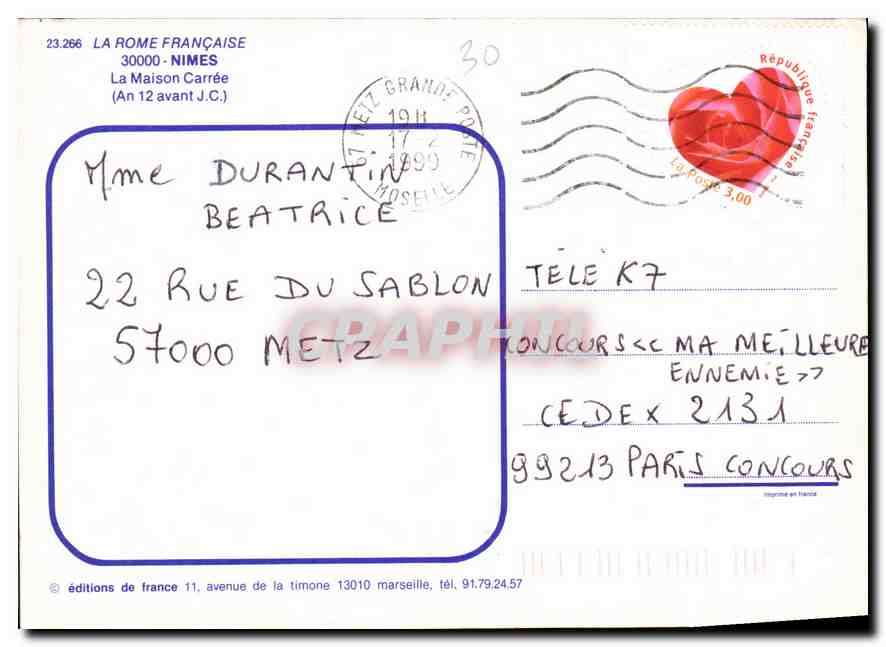 23.266 LA ROME FRANÇAISE
30000 - NIMES
La Maison Carrée
(An 12 avant J.C.)
30
57 METZ GRANDE POSTE
19H
17-2
1999
MOSELLE
République française
La Poste 3,00
Mme DURANTIN
BEATRICE
22 RUE DU SABLON
57000 METZ
TÉLÉ K7
CONCOURS << MA MEILLEURE
ENNEMIE >>
CEDEX 2131
99213 PARIS CONCOURS
imprimé en france
CPAPHIL
© éditions de france 11, avenue de la timone 13010 marseille, tél, 91.79.24.57